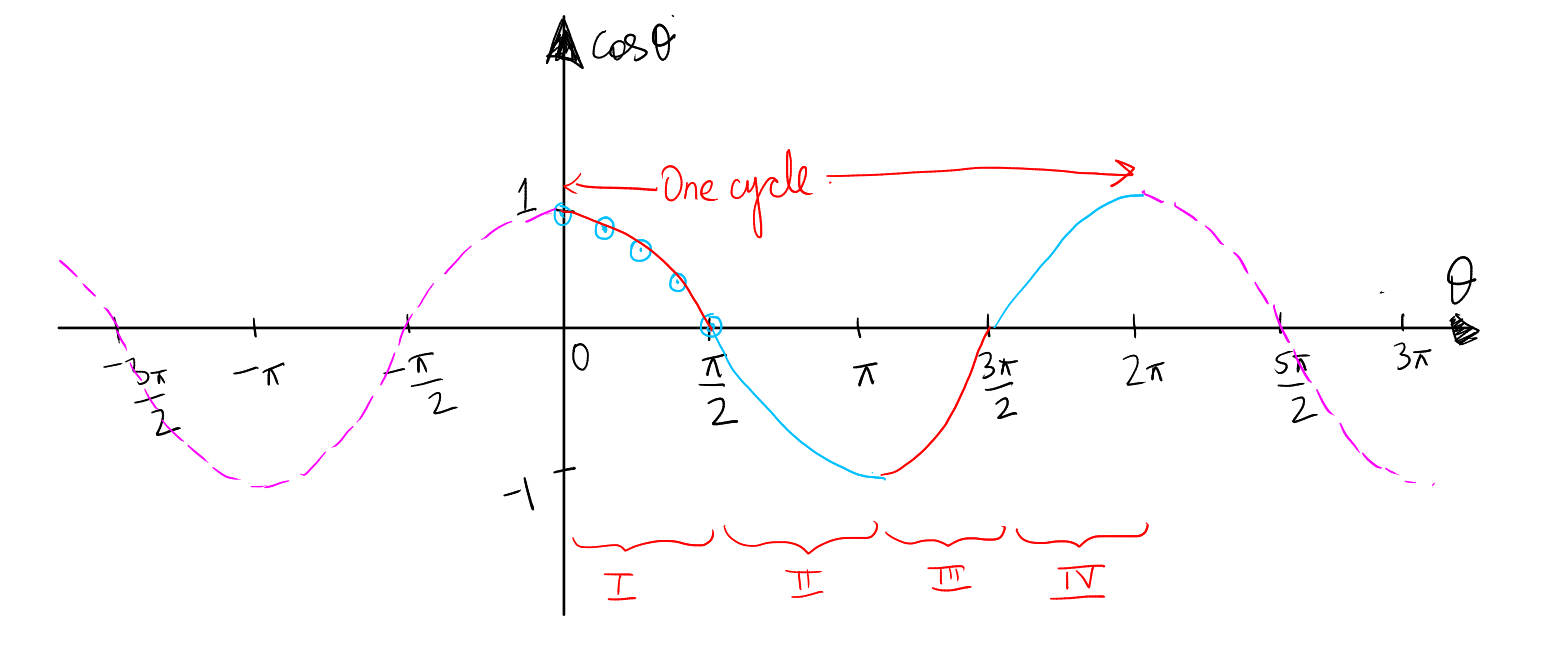 cosθ
One cycle
1
θ
-3π/2
-π
-π/2
0
π/2
π
3π/2
2π
5π/2
3π
-1
I
II
III
IV